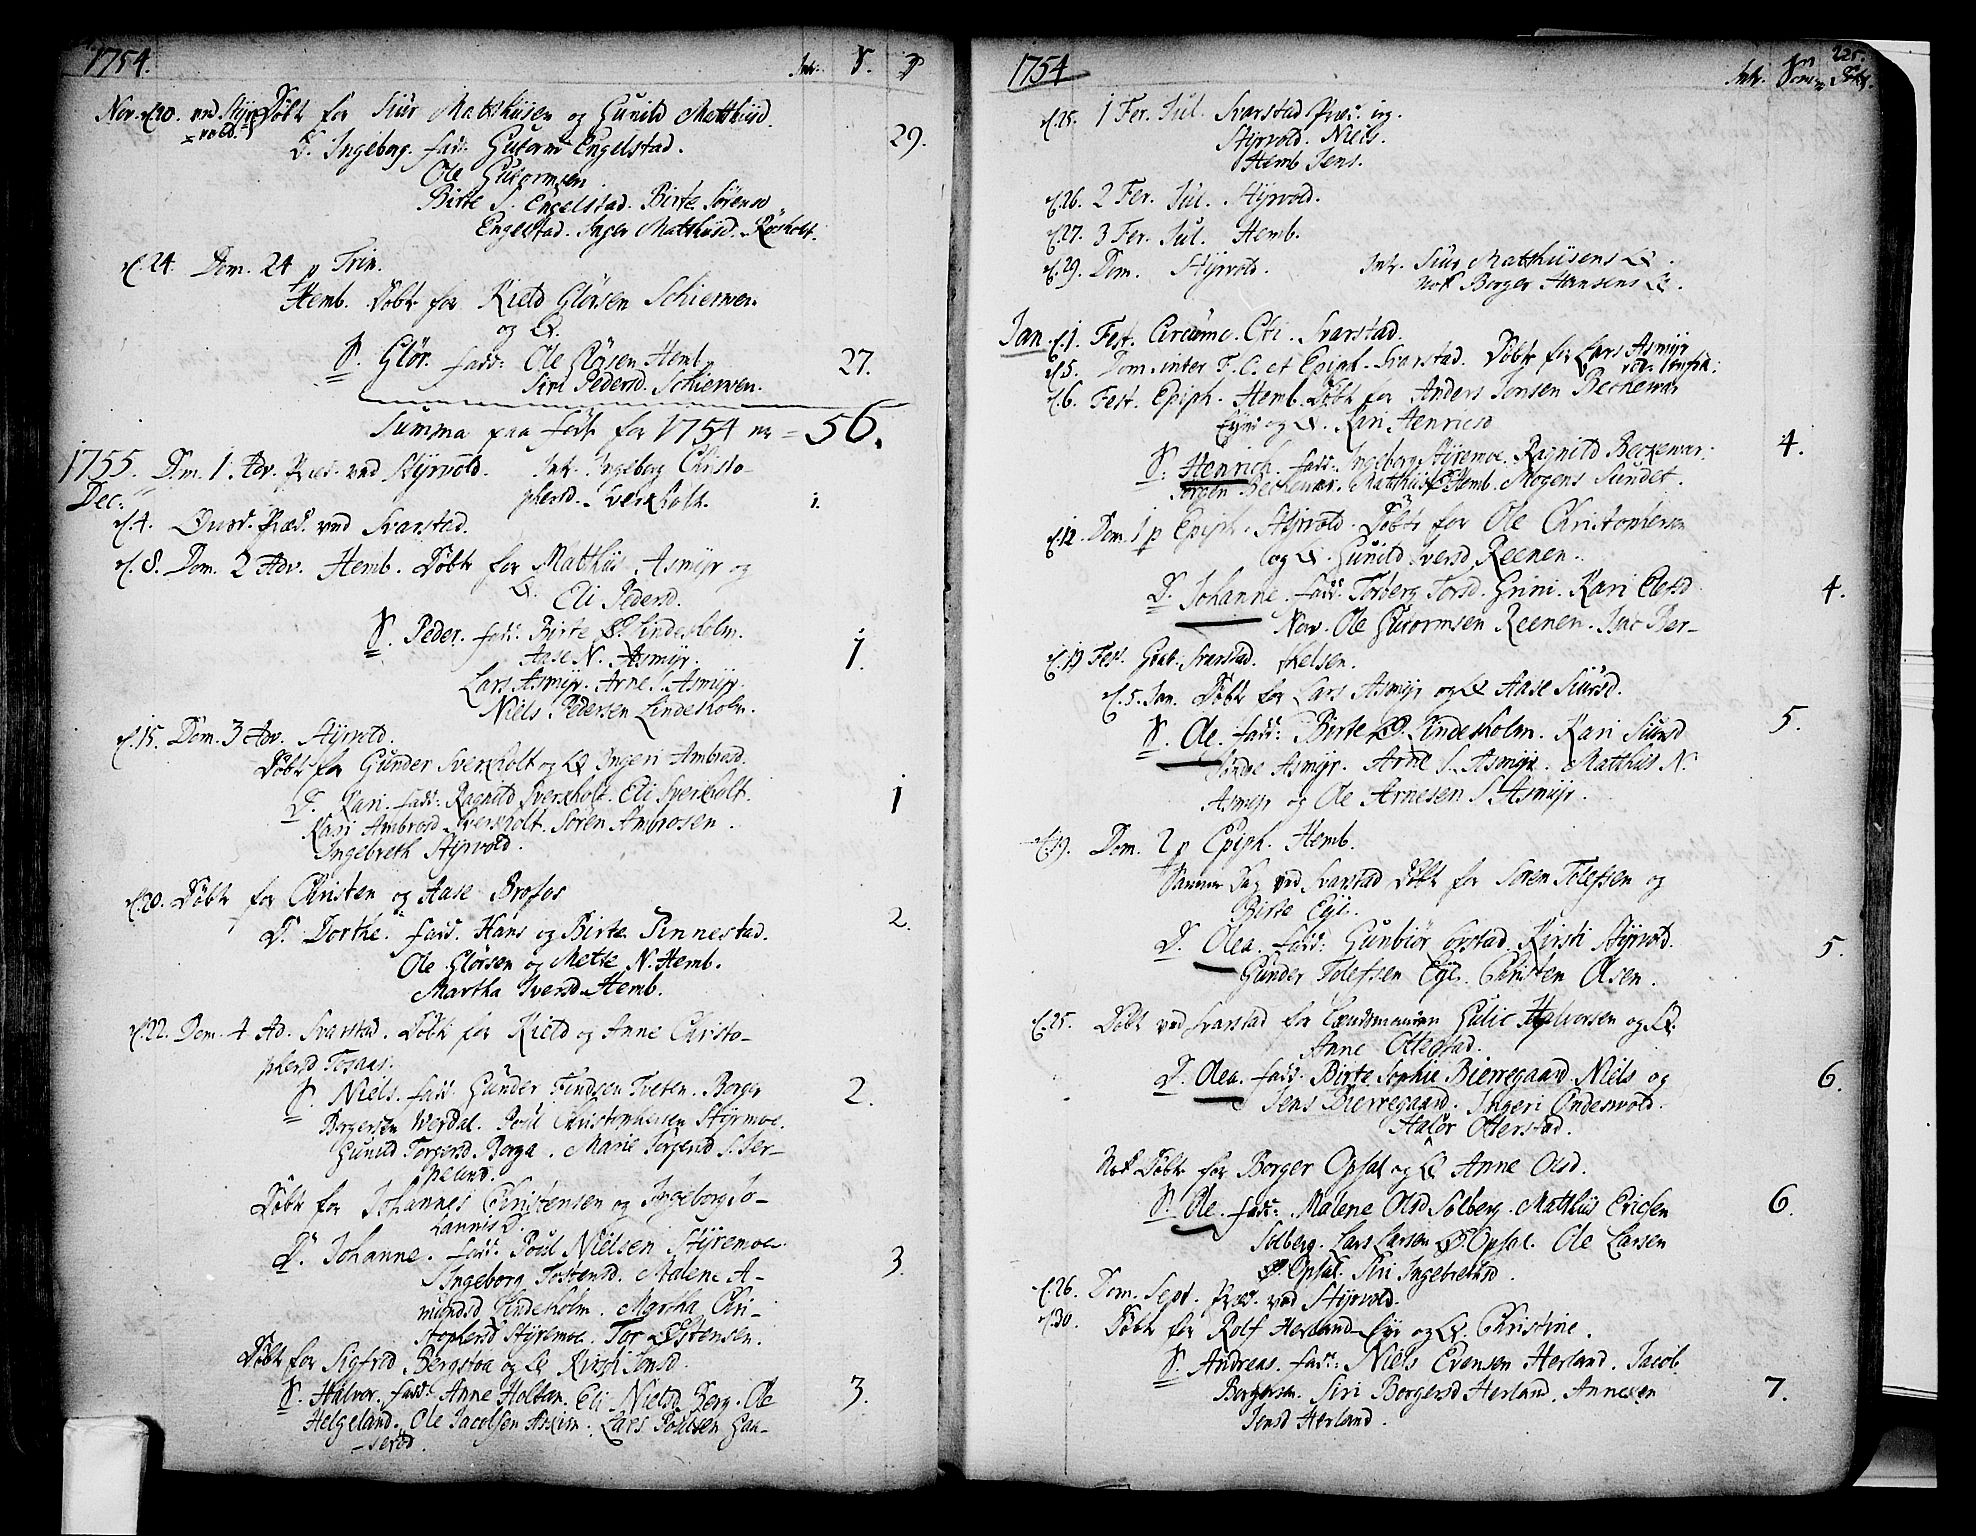 1754. Intr. S. D
Nov. d. 20. ved Styr- Døbt for Siur Matthisen og Gunild Matthisd.
vold.
D. Ingeborg. fadd: Gutorm Engelstad. 29.
Ole Gutormsen
Birte S. Engelstad. Birte Sørensd
Engelstad. Inger Matthisd.
d. 24. Dom. 24 p Trin.
Hemb. Døbt for Kield Glørsen Schierven
og Q.
S. Glør. fadd: Ole Glørsen Hemb 27.
Siri Pedersd. Schierven.
Summa paa fødte for 1754 er = 56.
1755. Dom. 1. Adv. Præd. ved Styrvold. Intr. Ingeborg Christo-
Dec: phersd. Sverkholt. 1.
d. 4. Præd. ved Svarstad.
d. 8. Dom. 2 Adv. Hemb. Døbt for Matthis Asmyr og
Q. Eli Pedersd.
S. Peder. fadd: Birte Lindesholm. 1.
Aase N. Asmyr.
Lars Asmyr. Arne S. Asmyr.
Niels Pedersen Lindesholm.
d. 15. Dom. 3 Adv. Styrvold.
Døbt for Gunder Sverkholt og Q Ingeri Ambrosd.
D. Kari. fadd: Ragnild Sverkholt. Eli Sverkholt. 1
Kari Ambrosd Sverkholt. Søren Ambrosen.
Ingebreth Styrvold.
d. 20. Døbt for Christen og Aase Brofos
D. Dorthe. fadd. Hans og Birte Sinnestad. 2.
Ole Glørsen og Mette N. Hemb.
Martha Iversd. Hemb.
d. 22. Dom. 4 Ad. Svarstad. Døbt for Kield og Anne Christo-
phersd Tosaas.
S. Niels. fadd Gunder Findsen Tveten. Borger 2.
Borgersen Werdal. Poul Christophersen Styremoe.
Gunild Torgersd. Borga. Marie Torgersd S. Ber-
Døbt for Johannes Christensen og Ingeborg Jo-
hannis D.
D. Johanne. fadd: Poul Nielsen Styremoe. 3.
Ingeborg Tostensd. Malene A-
mundsd Lindesholm. Martha Chri-
stophersd Styremoe. Tor Østensen.
Døbt for Sigfred Bergstøa og Q Kirsti Jonsd.
S. Halvor. fadd: Anne Holtan. Eli Nielsd Berg. Ole 3.
Helgeland. Ole Jacobsen Askim. Lars Poulsen Gaa-
serød.
1754 Intr. 225.
d. 25. 1 Fer. Jul. Svarstad Præd. eg.
Styrvold. Niels.
Hemb Jens.
d. 26. 2 Fer. Jul. Styrvold.
d. 27. 3 Fer. Jul. Hemb.
d. 29. Dom. Styrvold. Intr. Siur Matthisens Q.
nok Borger Hansens Q.
Jan d. 1. Fest. Circumc. Cti. Svarstad.
d. 5. Dom. inter F. C. et Epiph. Svarstad. Døbt for Lars Asmyr
d. 6. Fest. Epiph. Hemb. Døbt for Anders Jonsen Beckevar
Eye og Q. Kari Henricsd
S. Henrich. fadd: Ingeborg Styremoe. Ragnild Beckevar. 4.
Jørgen Beckevar. Matthis Hemb. Mogens Sundet.
d. 12. Dom. 1 p Epiph. Styrvold. Døbt for Ole Christophersen
og Q. Gunild Iversd Reenen.
D. Johanne. fadd: Torberg Torsd. Grini. Kari Olefsd 4.
Ole Gutormsen Reenen.
d. 19 Svarstad.
d. 5. Jan. Døbt for Lars Asmyr og Q Aase Siursd.
S. Ole. fadd: Birte Lindesholm. Kari Siursd 5.
Asmyr. Arne S. Asmyr. Matthis N.
Asmyr og Ole Arnesen S. Asmyr.
d. 19. Dom. 2 p Epiph. Hemb.
Samme Dag ved Svarstad Døbt for Søren Tolefsen og
Birte Eye.
D. Olea. fadd: Gunbiør Kirsti Styrvold. 5.
Gunder Tolefsen Eye. Christen Olsen.
d. 25. Døbt ved Svarstad for Lendsmanden Gulic Halvorsen og Q.
Anne Otterstad.
D. Olea. fadd. Birte Sophie Bierregaard. Niels og 6.
Jens Bierregaard. Ingeri Ondesvold.
Halvor Otterstad.
Nok Døbt for Borger Opsal og Q Anne Olsd.
S. Ole. fadd: Malene Olsd Solberg. Matthis Ericsen 6.
Solberg. Lars Larsen Opsal. Ole Larsen
Opsal. Siri Ingebretsd.
d. 26. Dom. Sept. Præd. ved Styrvold.
d. 30. Døbt for Rolf Herland og Q. Christine.
S. Andreas. fadd: Niels Evensen Herland. Jacob 7.
Borgersen. Siri Borgersd Herland. Anne
Jensd Herland.